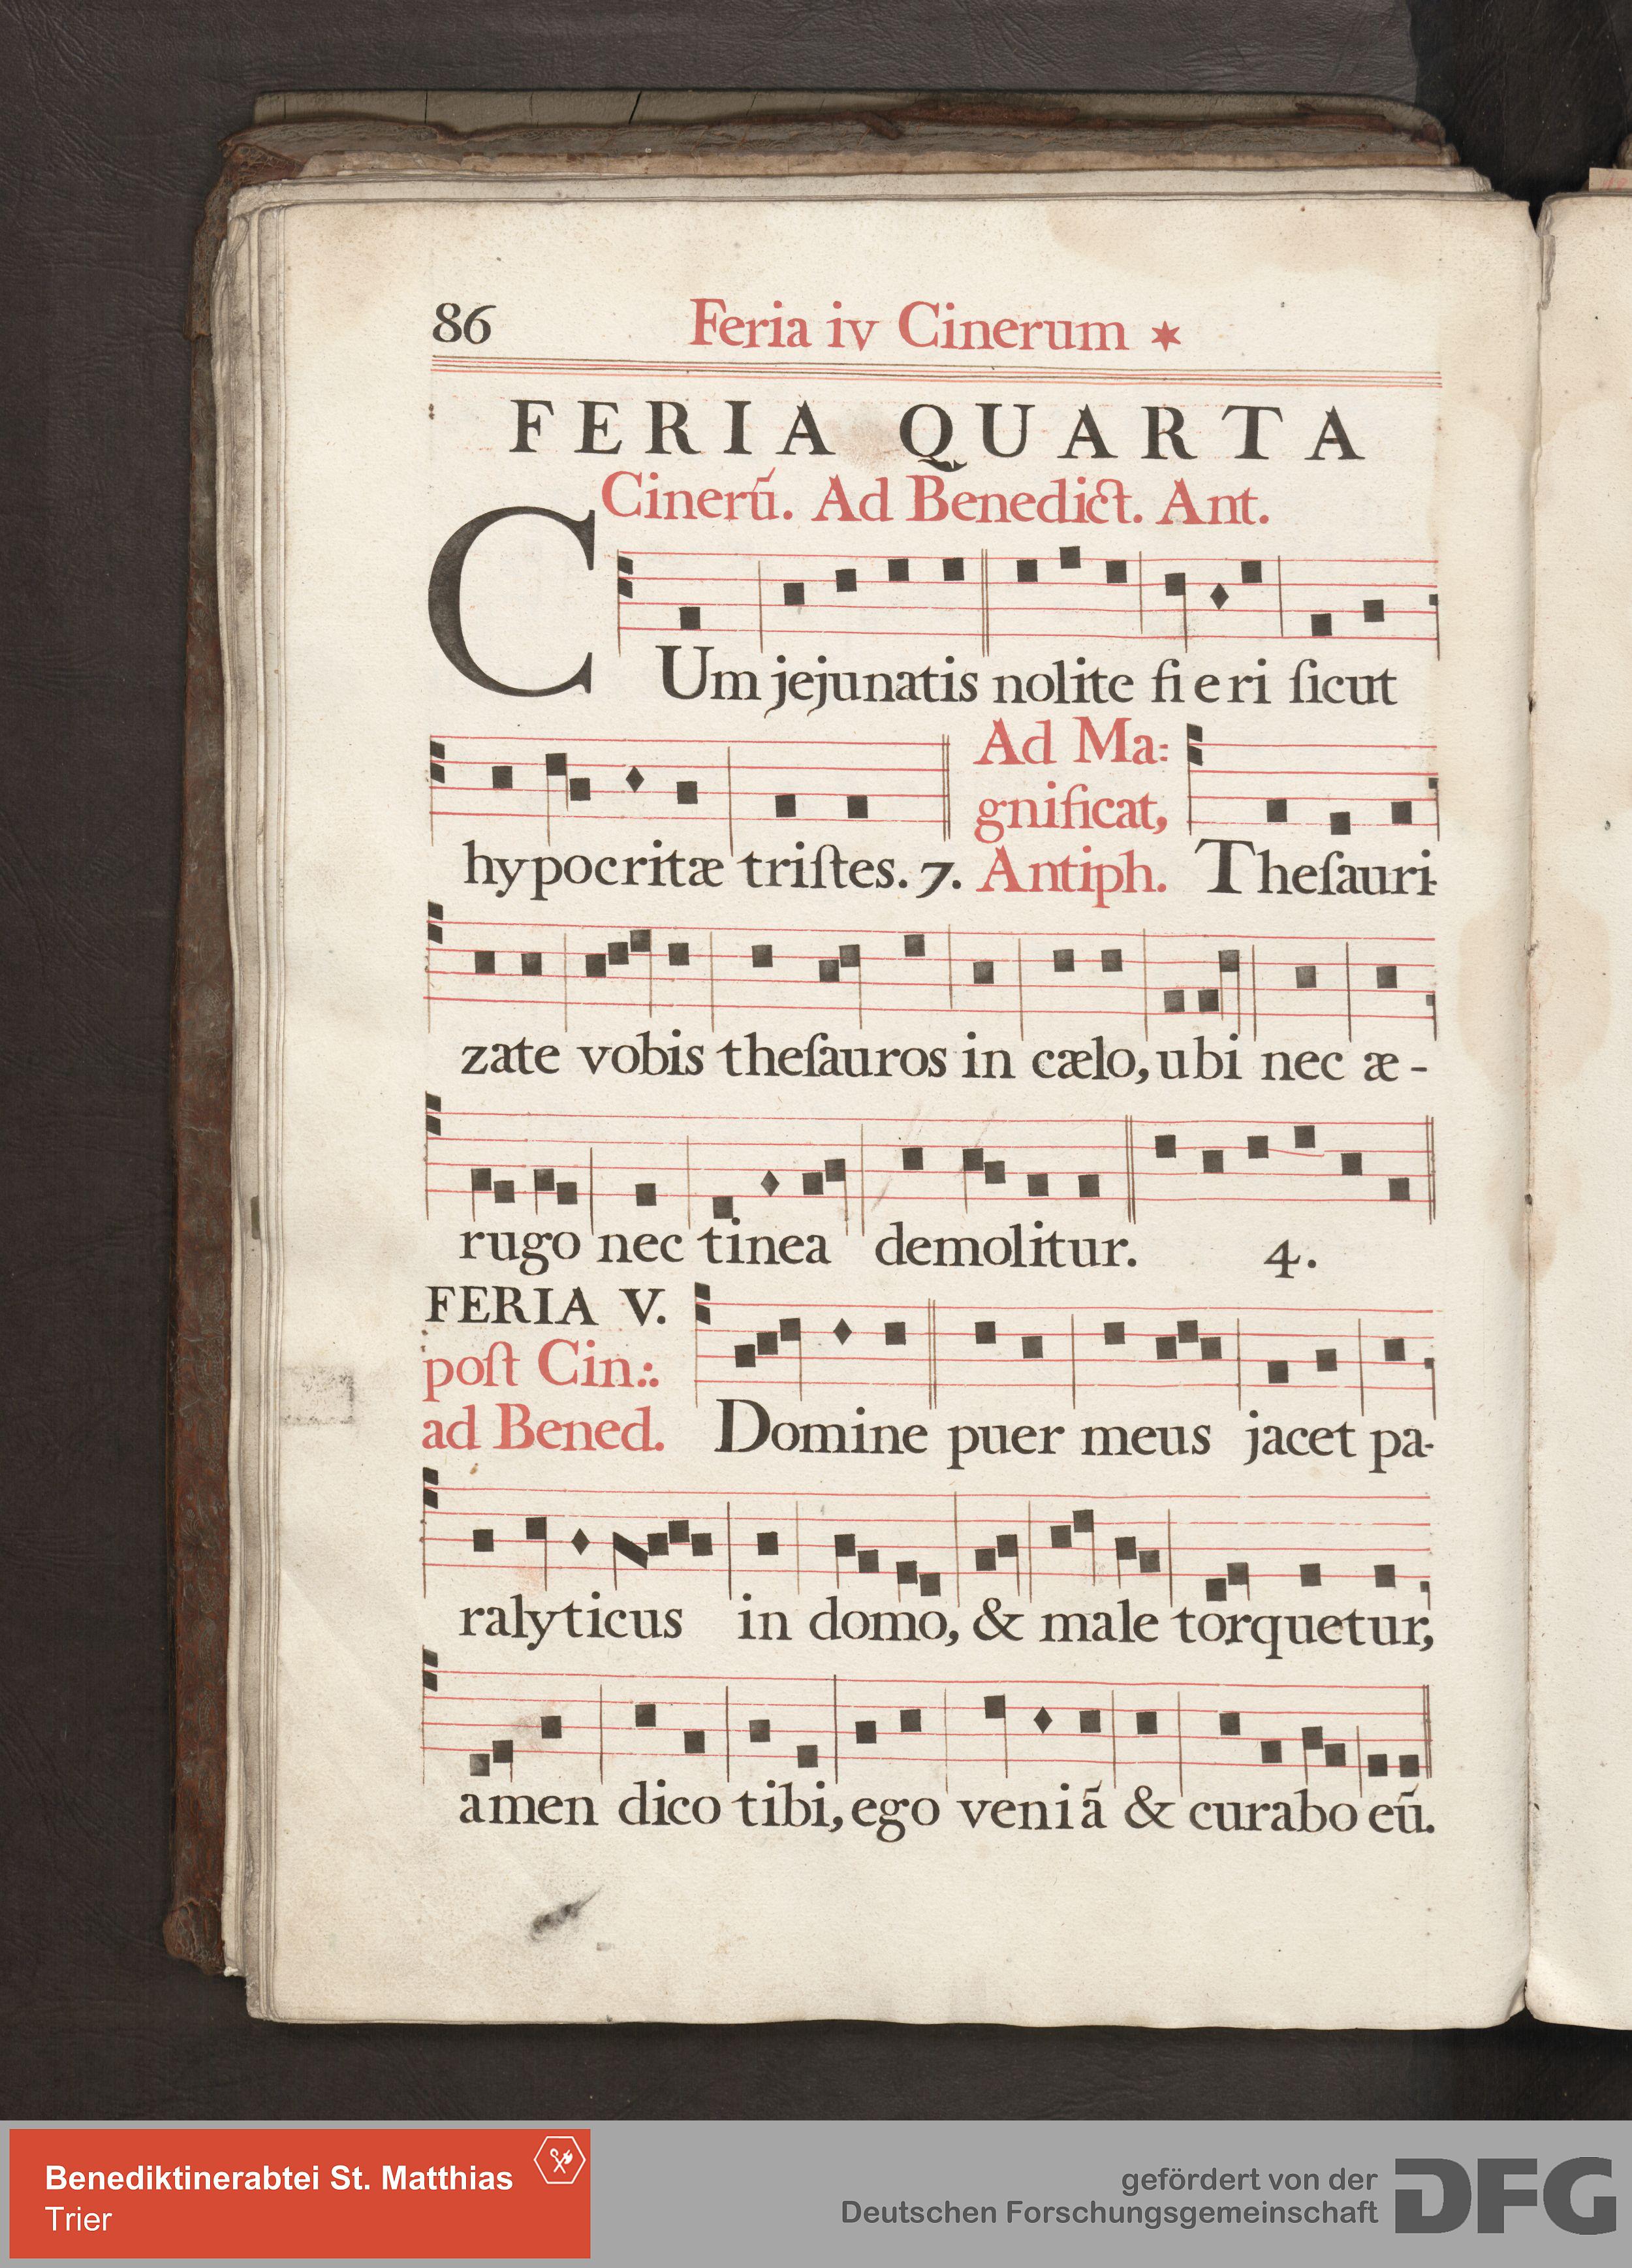 86 Feria iv Cinerum ✶
FERIA QUARTA
Cinerū. Ad Benedict. Ant.
CUm jejunatis nolite fieri ſicut
hypocritæ triſtes. 7. Ad Ma:
gnificat,
Antiph. Theſauri-
zate vobis theſauros in cælo, ubi nec æ-
rugo nec tinea demolitur. 4.
FERIA V.
poſt Cin.:
ad Bened. Domine puer meus jacet pa-
ralyticus in domo, & male torquetur,
amen dico tibi, ego veniā & curabo eū.
Benediktinerabtei St. Matthias
Trier
gefördert von der
Deutschen Forschungsgemeinschaft
DFG